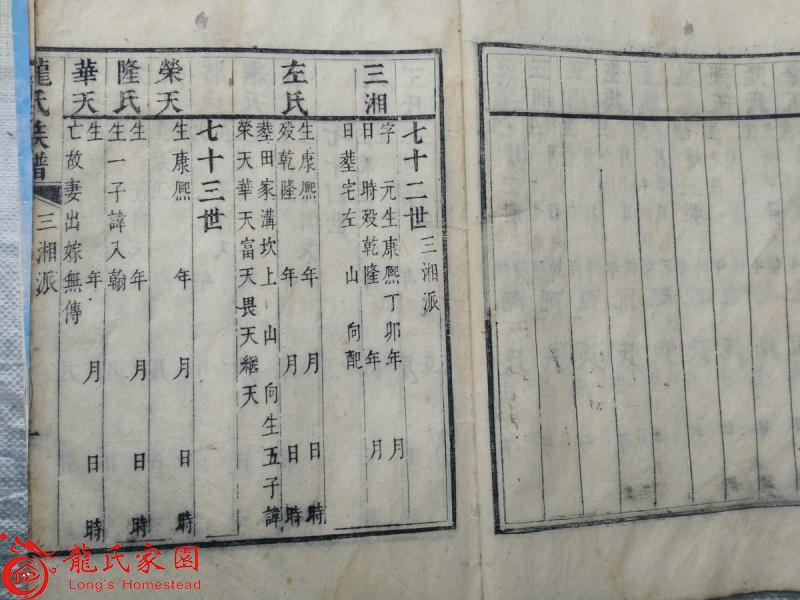 七十二世 三湘派
三湘
字 元生康熙丁卯年 月
日 時殁乾隆 年 月
日葬宅左 山 向配
左氏
生康熙 年 月 日 時
殁乾隆 年 月 日 時
葬田家溝坎上 山 向生五子諱
榮天華天富天畏天繼天
七十三世
榮天
生康熙 年 月 日 時
隆氏
生 年 月 日 時
生一子諱入翰
華天
生 年 月 日 時
亡故妻出嫁無傳
龍氏族譜 三湘派 一
龍氏家園
Long's Homestead